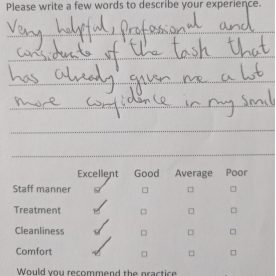 Please write a few words to describe your experience.
Very helpful, professional and
considerate of the task that
has already given me a lot
more confidence in my smile
Excellent Good Average Poor
Staff manner ☑ ☐ ☐ ☐
Treatment ☑ ☐ ☐ ☐
Cleanliness ☑ ☐ ☐ ☐
Comfort ☑ ☐ ☐ ☐
Would you recommend the practice